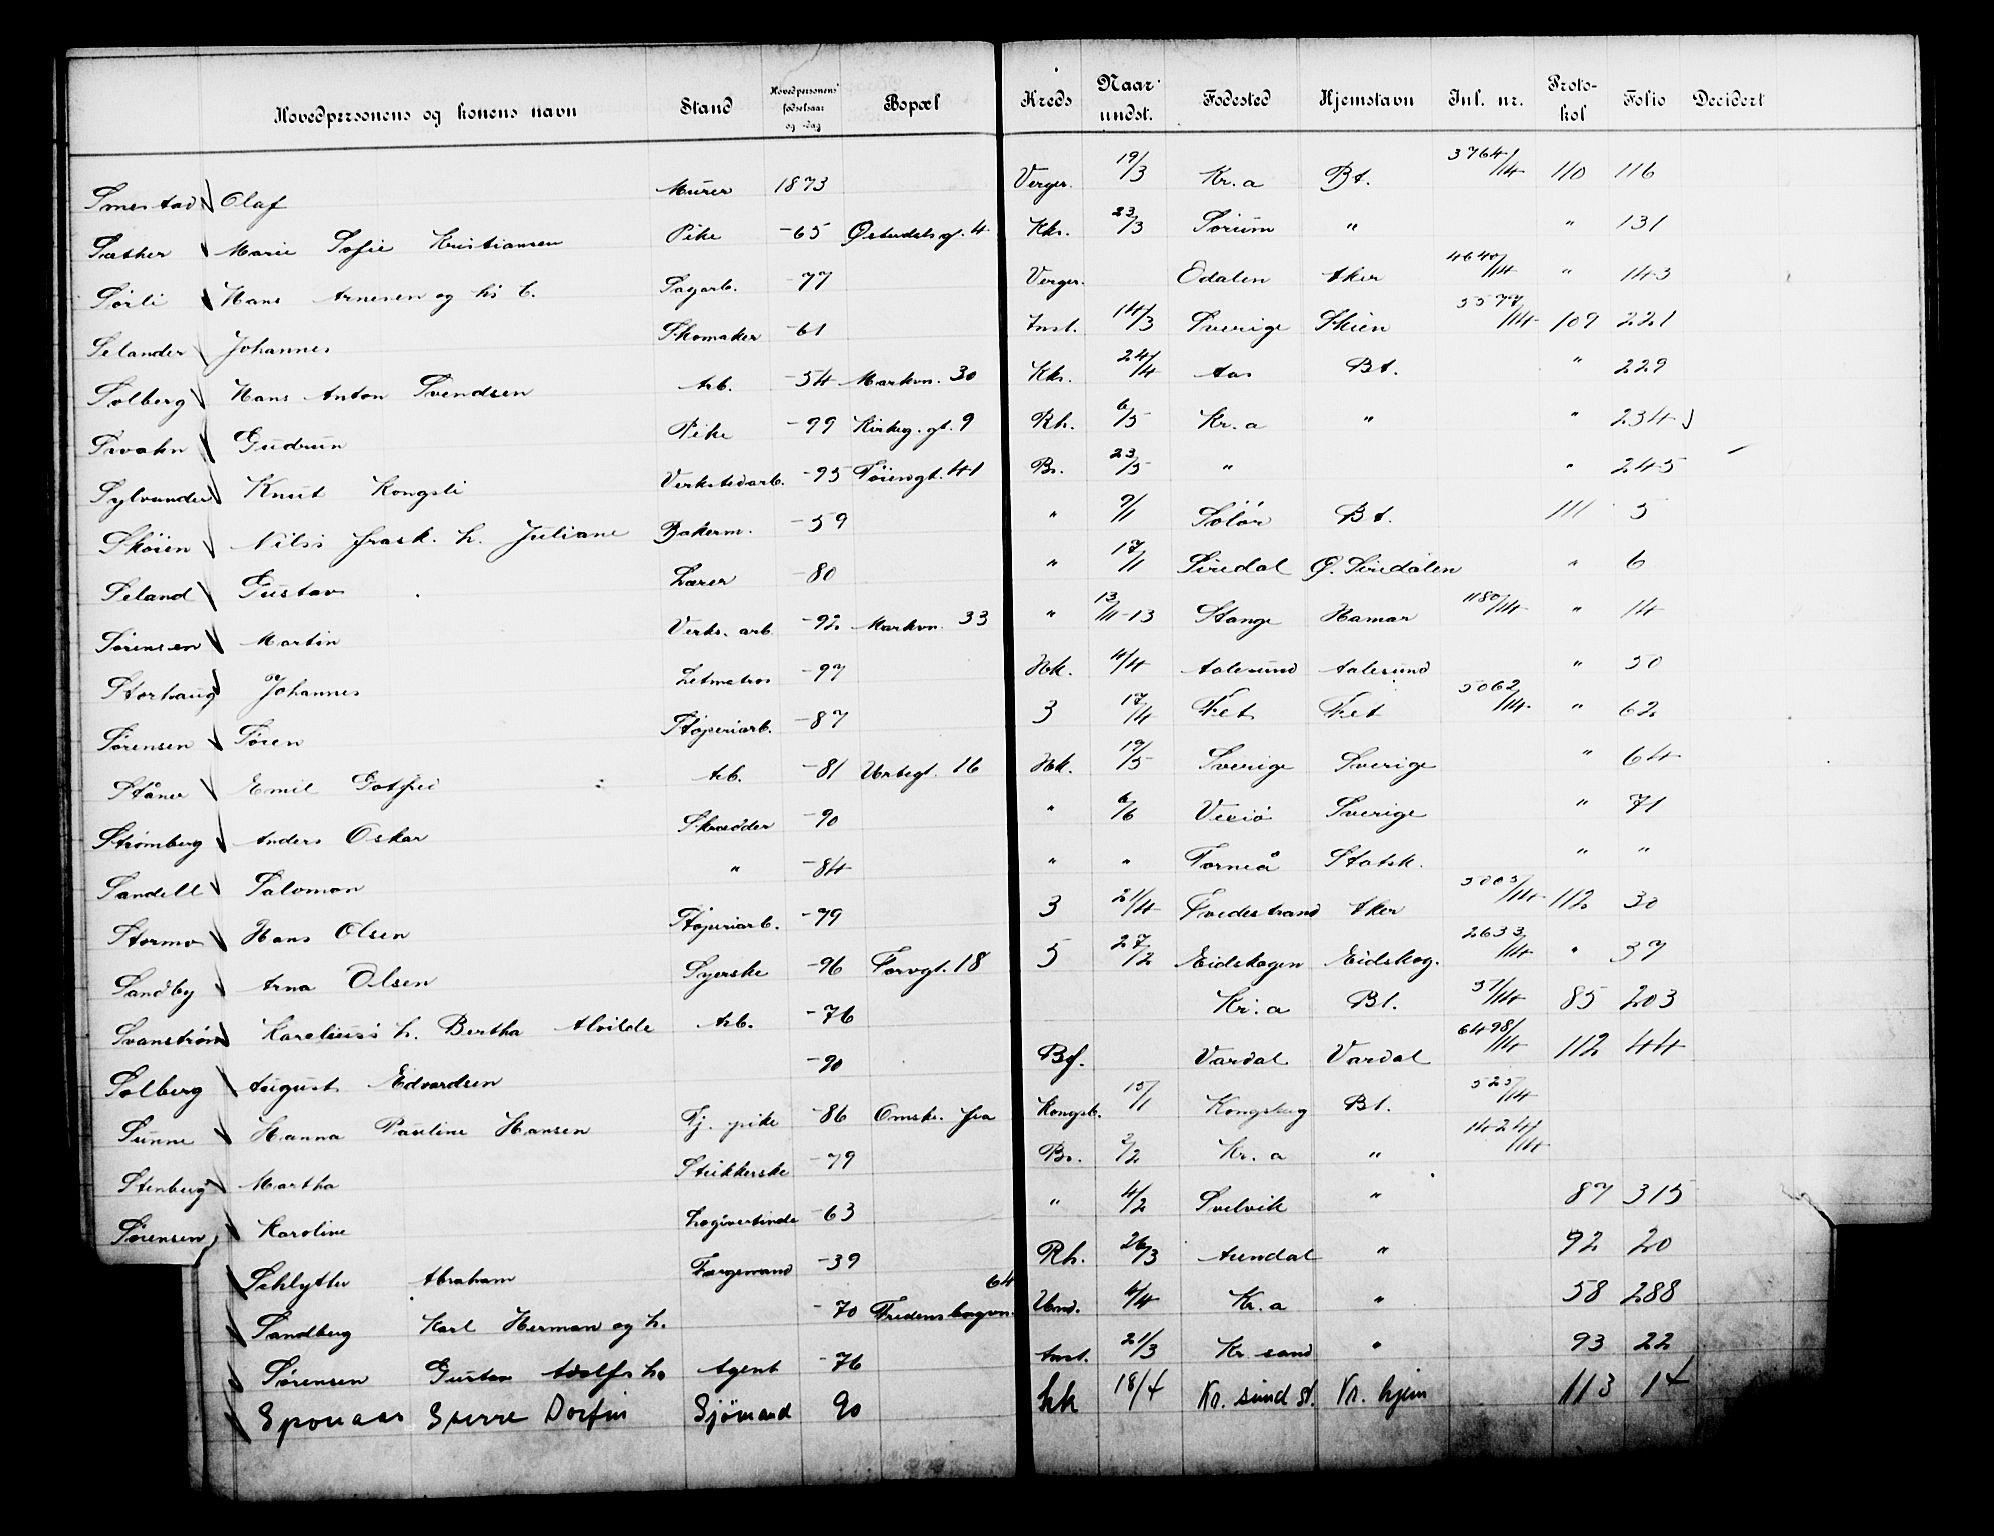 Hovedpersonens og konens navn Stand Hovedpersonens fødselsaar og -dag Bopæl Kreds Naar undst. Fødested Hjemstavn Inl. nr. Proto-kol Folio Decidert
Smestad Olaf Murer 1873 Verger. 19/3 Kr.a Bt. 3764/14 110 116
Sæther Marie Sofie Kristiansen Pike -65 Østerdalsgt. 4 Kk. 23/3 Sørum " " 131
Sørli Hans Arnesen og hs b. Sagarb. -77 Verger. Edalen Aker 4640/14 " 143
Selander Johannes Skomaker -61 Inst. 14/3 Sverige Skien 5577/14 109 221
Solberg Hans Anton Svendsen Arb. -54 Markvn. 30 Kk. 24/4 Aas Bt. " 229
Svahn Gudrun Pike -99 Kirkeg. gt. 9 Rh. 6/5 Kr.a " " 234
Sylvander Knut Kongsli Verkstedarb. -95 Tøiengt. 41 Br. 23/5 " " 245
Skøien Nils frask. h. Juliane Bakerm. -59 " 9/1 Solør Bt. 111 5
Seland Gustav Lærer -80 " 17/1 Siredal Ø. Siredalen " 6
Sørensen Martin Verks. arb. -92 Markvn. 33 " 13/11-13 Stange Hamar 1180/14 " 14
Storhaug Johannes Letmatros -97 Hk. 4/4 Aalesund Aalesund " 50
Sørensen Søren Støperiarb. -87 3 17/4 Fet Fet 5062/14 " 62
Ståner Emil Gotfred Arb. -81 Urtegt. 16 Hk. 19/5 Sverige Sverige " 64
Strømberg Anders Oskar Skrædder -90 " 6/6 Vexiø Sverige " 71
Sandell Salomon " -84 " " Torneå Statsk. " "
Stormo Hans Olsen Støperiarb. -79 3 21/4 Tvedestrand Aker 5005/14 112 30
Sandby Arna Olsen Syerske -96 Torvgt. 18 5 27/2 Eidskogen Eidskog. 2633/14 " 37
Svanstrøm Karelius's h. Bertha Alvilde Arb. -76 Kr.a Bt. 57/14 85 203
Solberg August Edvardsen -90 Bf. Vardal Vardal 6498/14 112 44
Sunne Hanna Pauline Hansen Tj. pike -86 Omstr. fra Kongsb. 15/1 Kongsberg Bt. 525/14
Stenberg Martha Strikkerske -79 Br. 2/2 Kr.a " 1424/14
Sørensen Karoline Logivertinde -63 " 4/2 Svelvik " 87 315
Schlytter Abraham Færgemand -39 Rh. 26/3 Arendal " 92 20
Sandberg Karl Herman og h. -70 Fredensborgvn. 64 Und. 4/4 Kr.a " 58 288
Sørensen Gustav Adolfs h. Agent -76 Inst. 21/3 Kr. sand " 93 22
Sponaas Sverre Dorfin Sjömand 90 kk 18/4 Kr. sund st. Kr. hjem 113 14